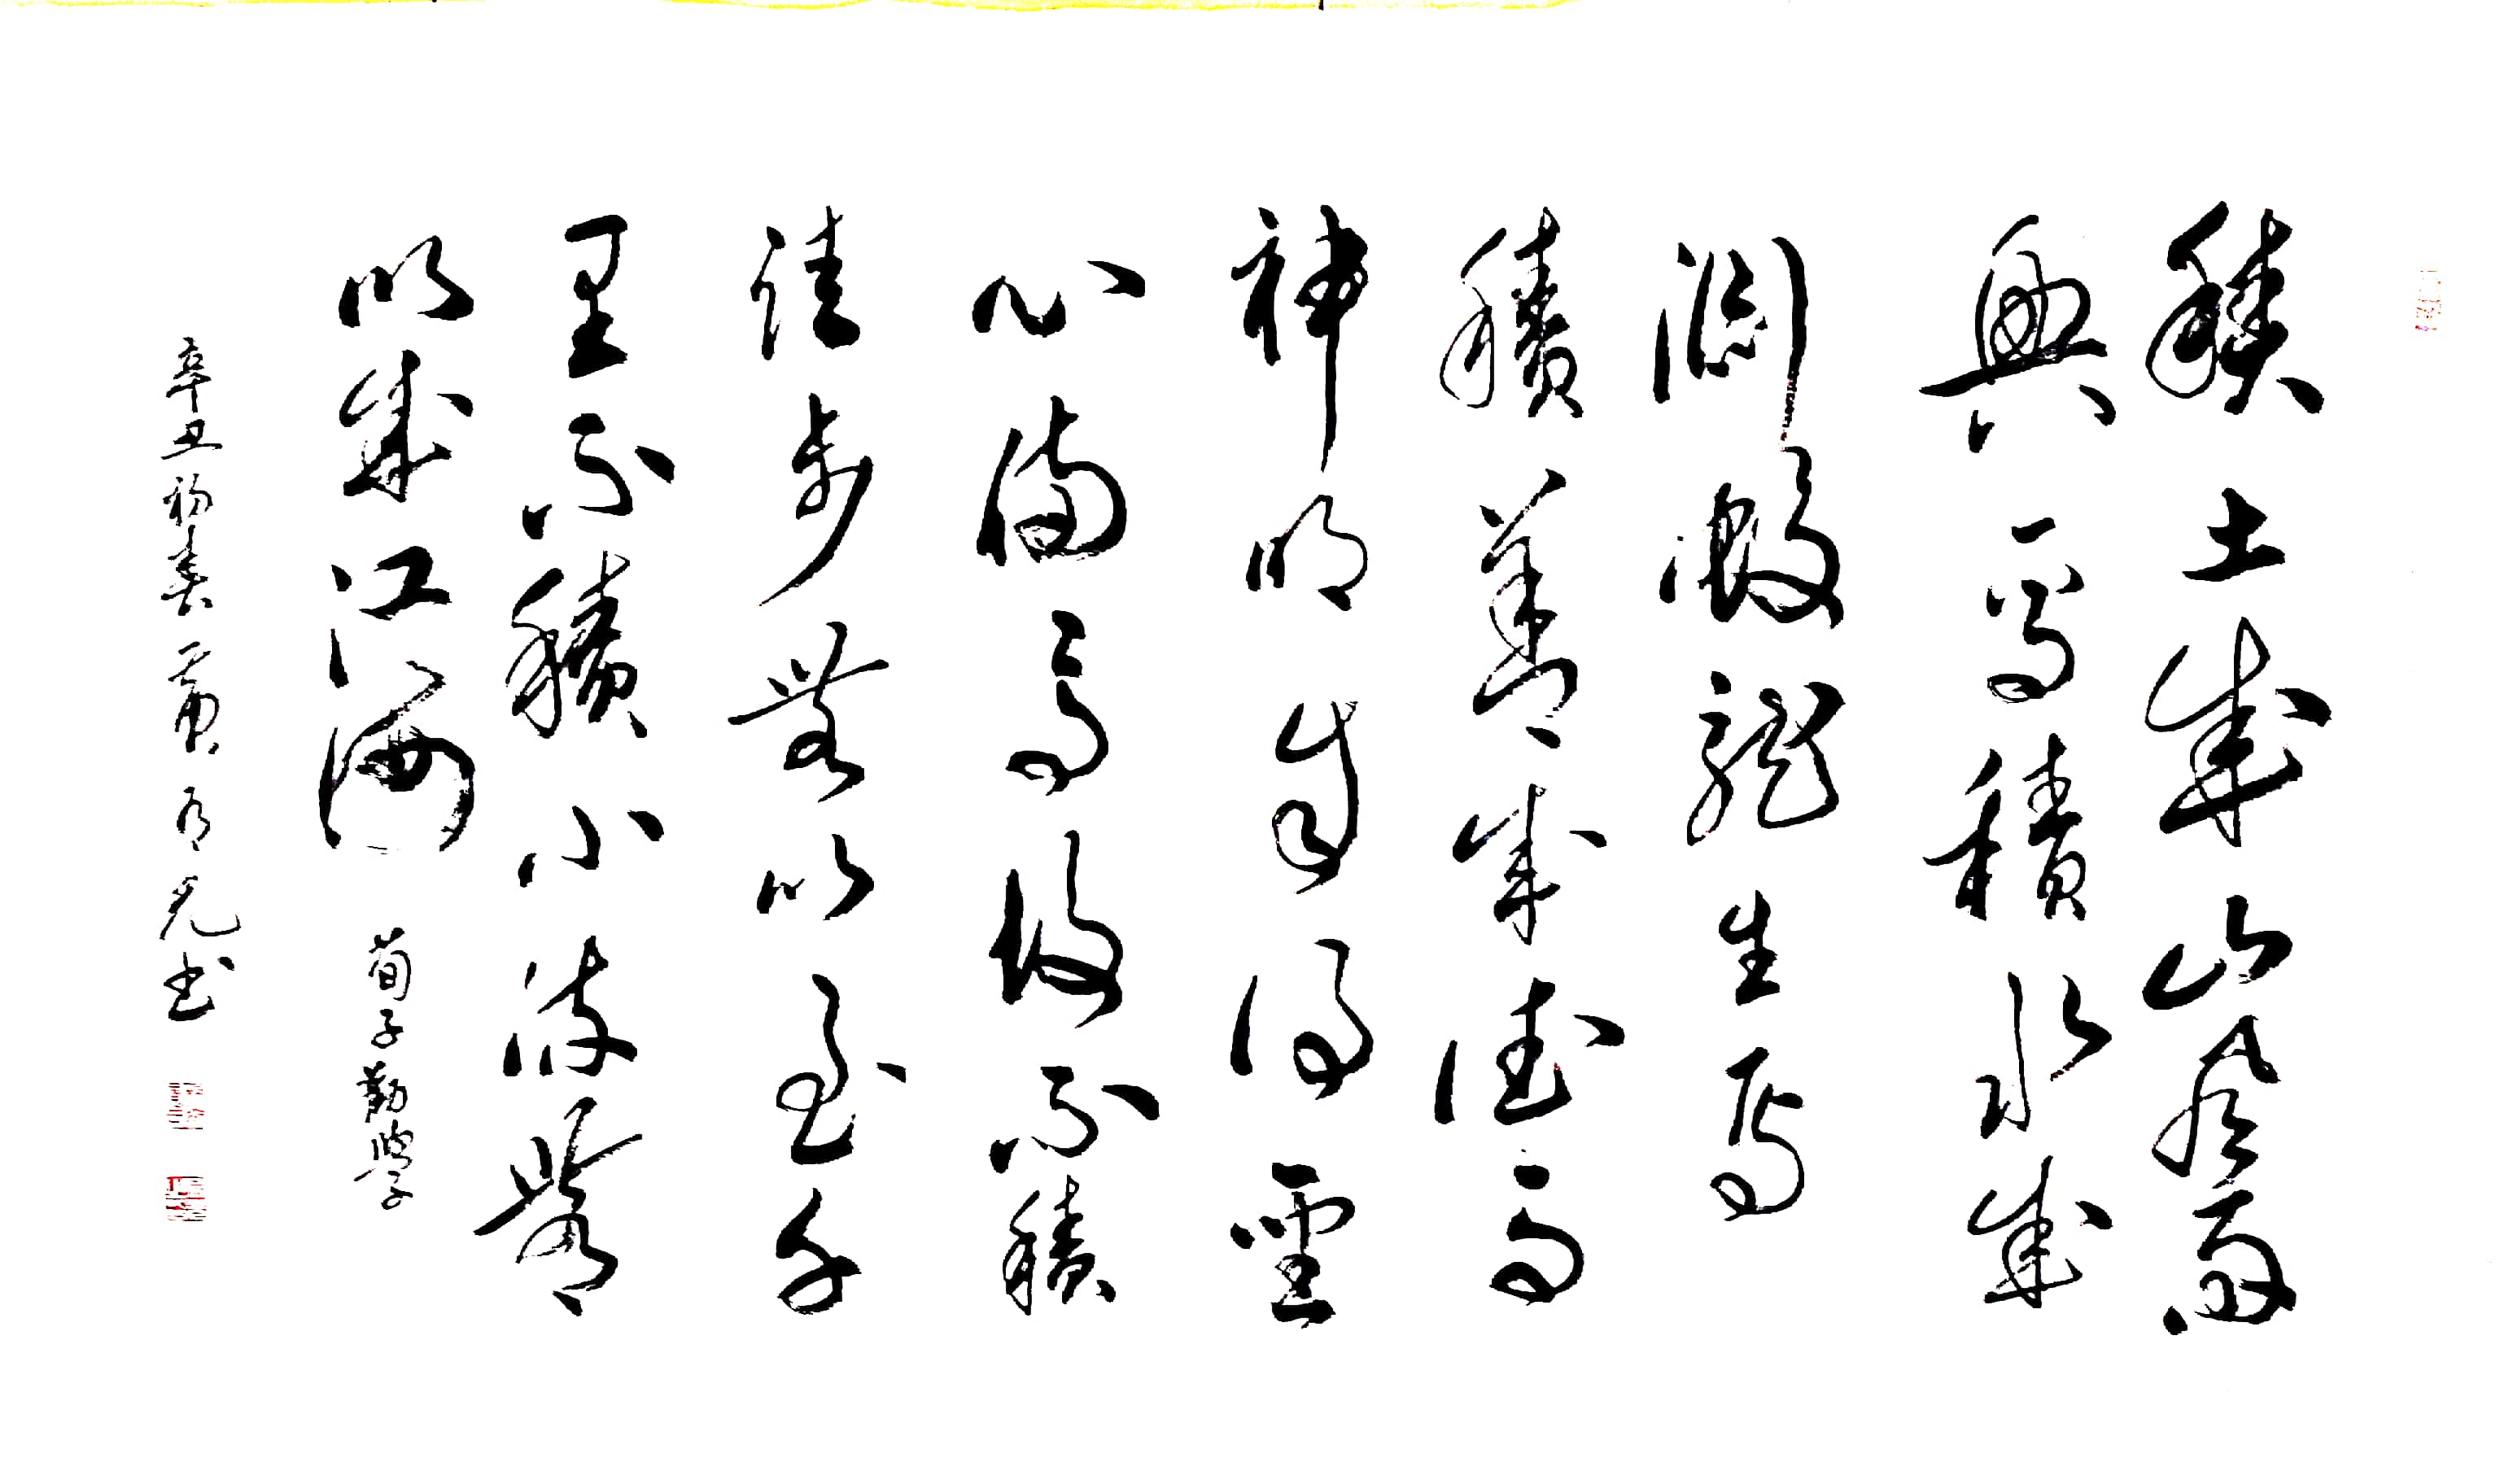 積土成山風雨
興焉積水成
淵蛟龍生焉
積善成德而
神明自得聖
心備焉故不積
跬步無以至千
里不積小流無
以成江海 荀子勸學
辛丑初春 書